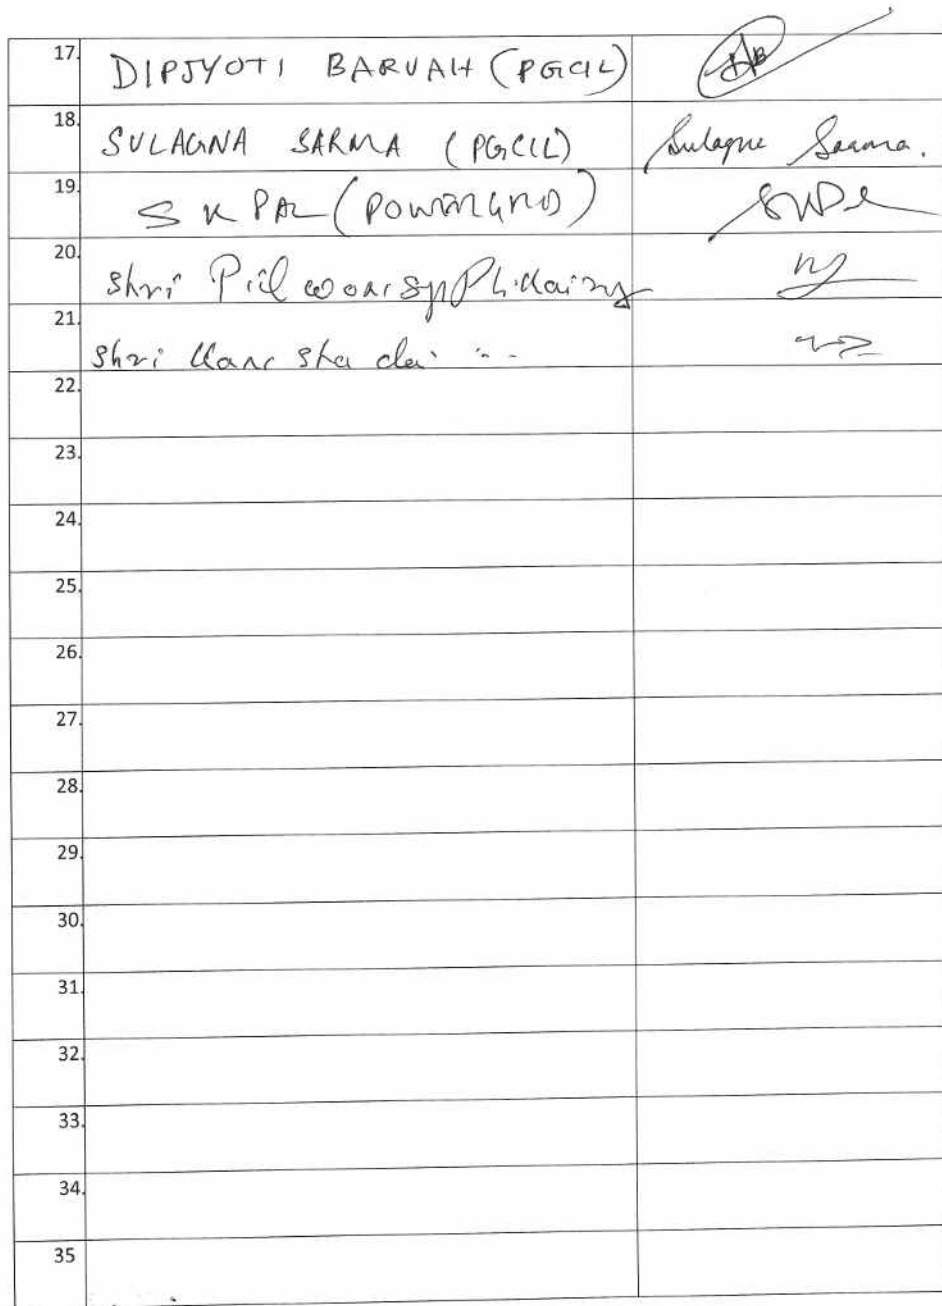 17. DIPJYOTI BARUAH (PGCIL)
18. SULAGNA SARMA (PGCIL) Sulagna Sarma.
19. S K PAL (POWERGRID)
20. Shri
21. Shri
22.
23.
24.
25.
26.
27.
28.
29.
30.
31.
32.
33.
34.
35